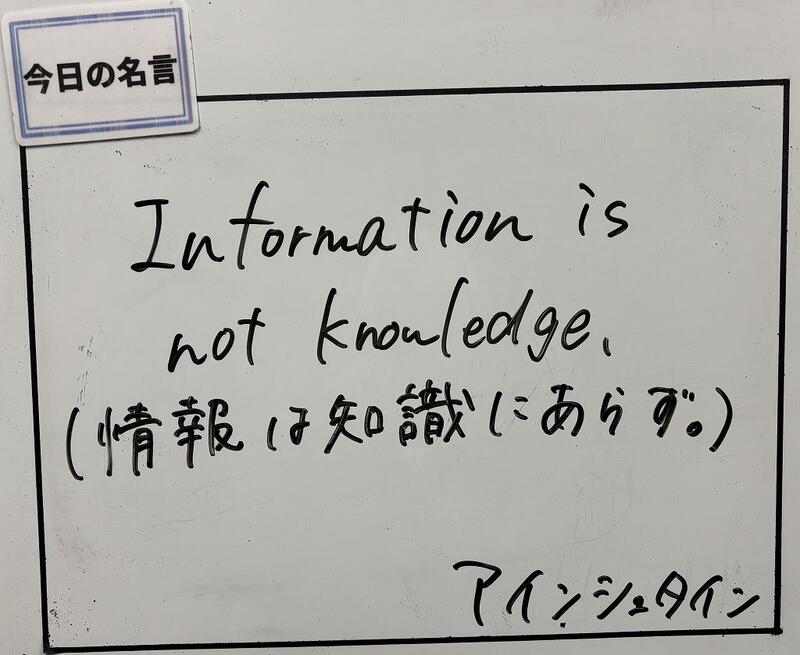 今日の名言
Information is
not knowledge.
(情報は知識にあらず。)
アインシュタイン